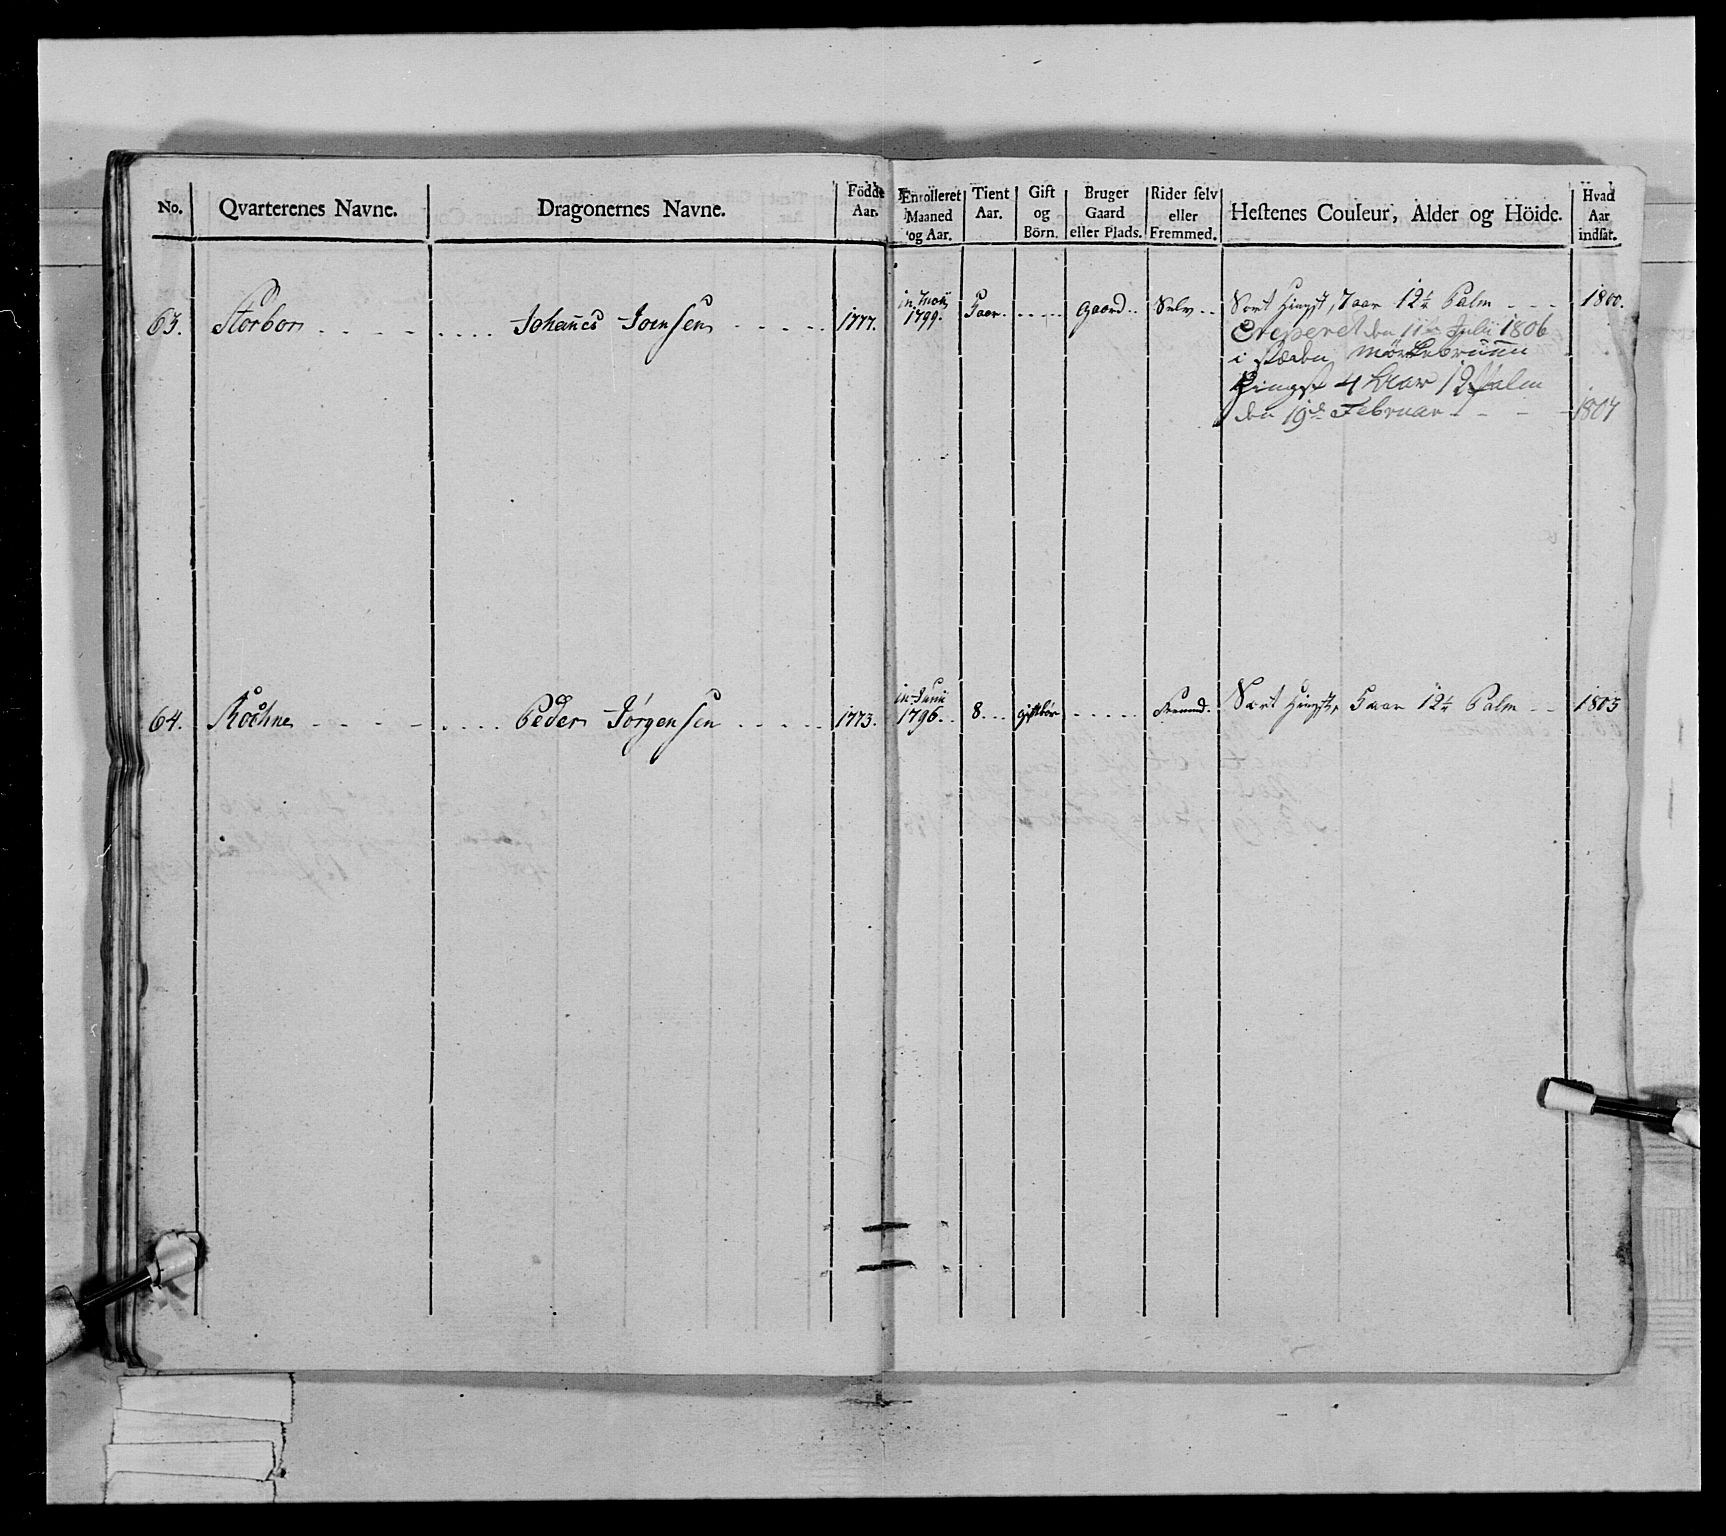 No. Qvarterenes Navne. Dragonernes Navne. Födde Aar. Enrolleret Maaned og Aar. Tient Aar. Gift og Börn. Bruger Gaard eller Plads. Rider selv eller Fremmed. Hestenes Couleur, Alder og Höide. Hvad Aar indsat.
63. Storbon . . . . . . . . . Johanes Joensen . . . . . 1777. in Maij 1799. 5 aar . . . . . . gaard . . Selv . . Sort Hingst, 7 aar 12½ Palm - - - 1800.
den 11te Julii 1806
i stæden mørkebruun
Hingst 4 Aar 12 Palm
den 19de Februar - - - 1807
64. Roehne . . . . . . . . . Peder Jørgensen . . . . . 1773. in Junii 1796. . 8 . . . gift . . . . . Fremmd. Sort Hingst, 5 aar 12½ Palm - - 1803